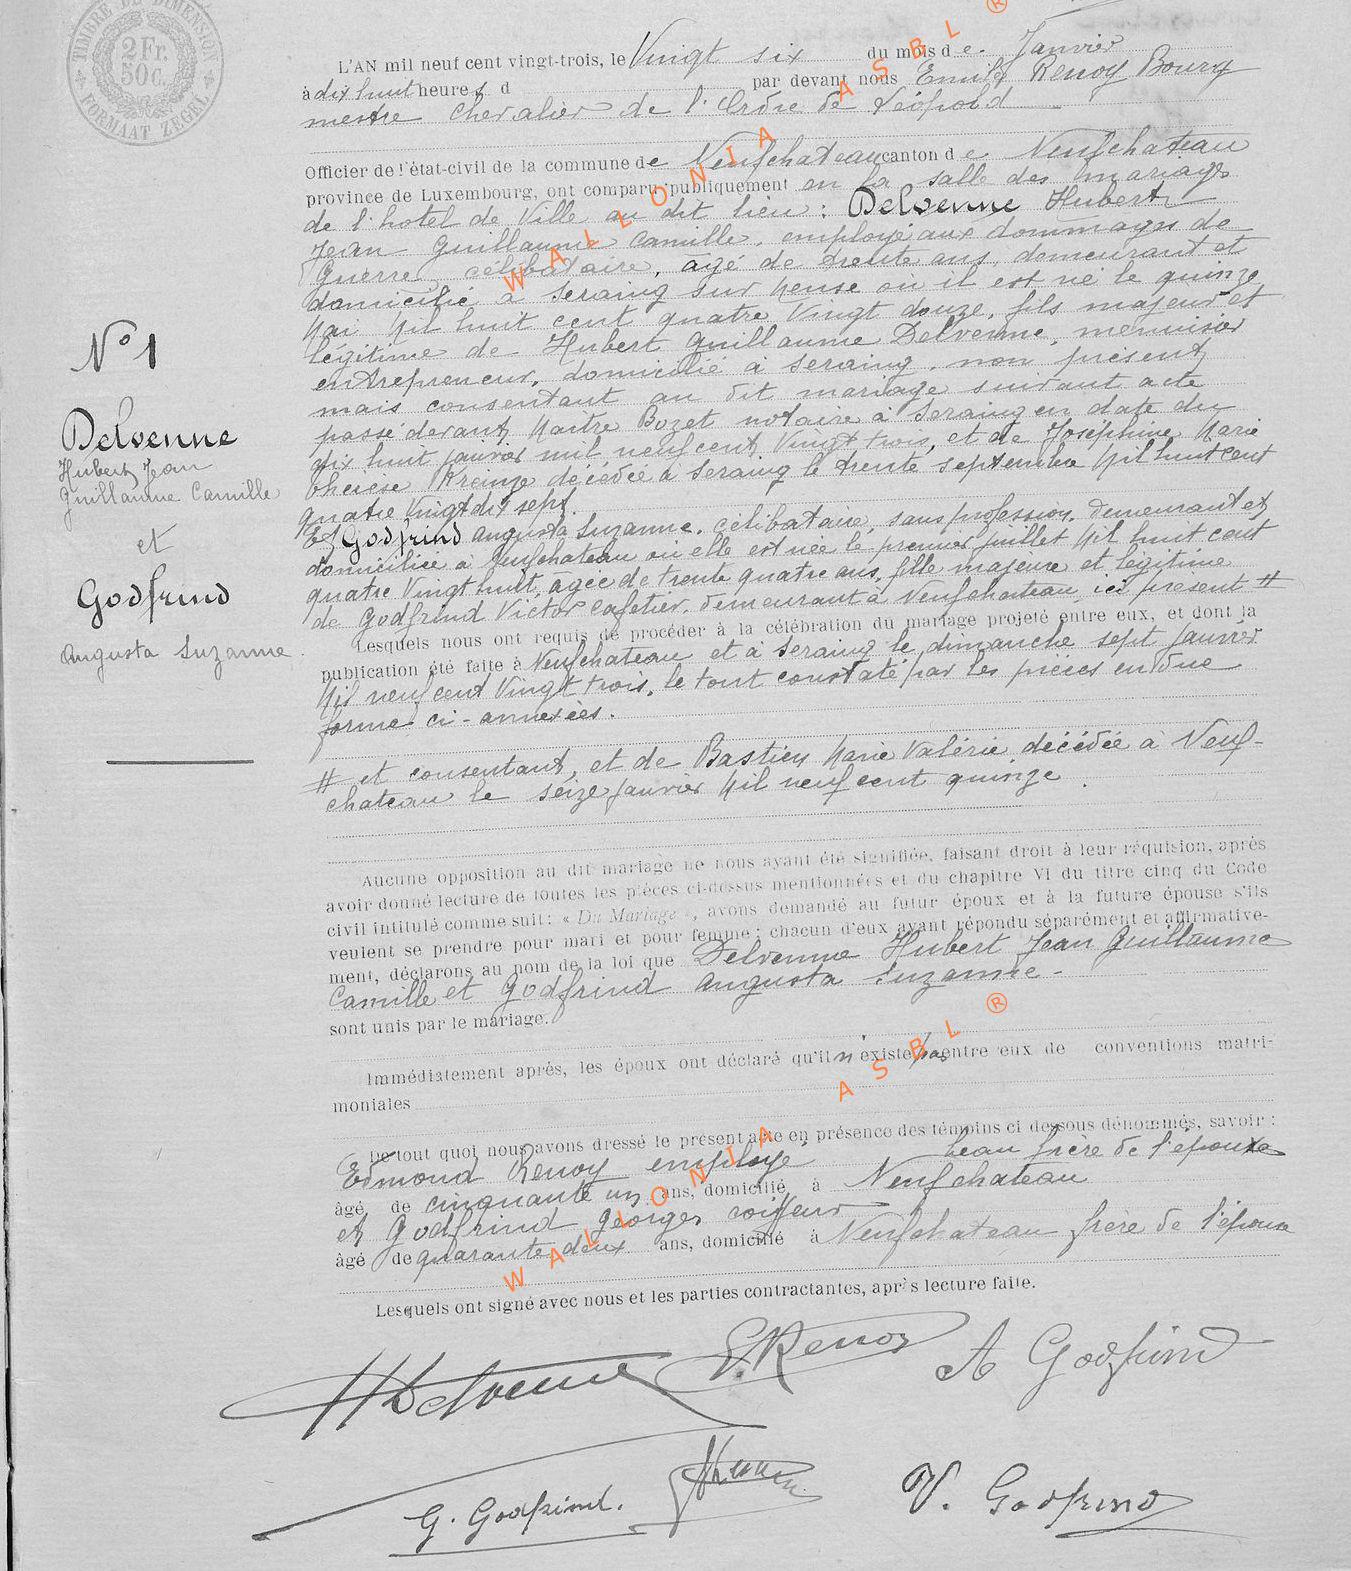 TIMBRE DE DIMENSION
2 Fr.
50 C.
FORMAAT ZEGEL
L'AN mil neuf cent vingt-trois, le Vingt six du mois de Janvier
à dix huit heures d par devant nous Emile Renoy Bourg
mestre Chevalier de l'Ordre de Léopold
Officier de l'état-civil de la commune de Neufchateau canton de Neufchateau
province de Luxembourg, ont comparu publiquement en la salle des mariages
de l'hotel de Ville au dit lieu : Delvenne Hubert
Jean Guillaume Camille, employé aux dommages de
Guerre célibataire, agé de trente ans, demeurant et
domicilié à Seraing sur Meuse où il est né le quinze
Mai Mil huit cent quatre Vingt douze, fils majeur et
légitime de Hubert Guillaume Delvenne, menuisier
entrepreneur, domicilié à Seraing, non présent
mais consentant au dit mariage suivant acte
passé devant Maitre Bozet notaire à Seraing en date du
dix huit janvier mil neuf cent Vingt trois, et de Joséphine Marie
Thérèse décédée à Seraing le trente septembre Mil huit cent
quatre Vingt dix sept.
Et Godfrind Augusta Suzanne, célibataire, sans profession, demeurant et
domiciliée à Neufchateau où elle est née le premier juillet Mil huit cent
quatre Vingt huit, agée de trente quatre ans, fille majeure et légitime
de Godfrind Victor cafetier, demeurant à Neufchateau, ici présent #
Lesquels nous ont requis de procéder à la célébration du mariage projeté entre eux, et dont la
publication été faite à Neufchateau et à Seraing le dimanche sept janvier
Mil neuf cent Vingt trois, le tout constaté par les pièces en due
forme ci-annexées.
# et consentant, et de Bastien Marie Valérie décédée à Neuf-
chateau le seize janvier Mil neuf cent quinze.
N° 1
Delvenne
Hubert Jean
Guillaume Camille
et
Godfrind
Augusta Suzanne.
Aucune opposition au dit mariage ne nous ayant été signifiée, faisant droit à leur réquision, après
avoir donné lecture de toutes les pièces ci-dessus mentionnées et du chapitre VI du titre cinq du Code
civil intitulé comme suit : « Du Mariage », avons demandé au futur époux et à la future épouse s'ils
veulent se prendre pour mari et pour femme ; chacun d'eux ayant répondu séparément et affirmative-
ment, déclarons au nom de la loi que Delvenne Hubert Jean Guillaume
Camille et Godfrind Augusta Suzanne -
sont unis par le mariage.
Immédiatement après, les époux ont déclaré qu'il n'existe pas entre eux de conventions matri-
moniales
De tout quoi nous avons dressé le présent acte en présence des témoins ci dessous dénommés, savoir :
Edmond Renoy employé beau frère de l'épouse
âgé de cinquante un ans, domicilié à Neufchateau
et Godfrind Georges coiffeur
âgé de quarante deux ans, domicilié à Neufchateau frère de l'épouse
Lesquels ont signé avec nous et les parties contractantes, après lecture faite.
HDelvenne E. Renoy A Godfrind
G. Godfrind. V. Godfrind
WALLONIA ASBL ®
WALLONIA ASBL ®